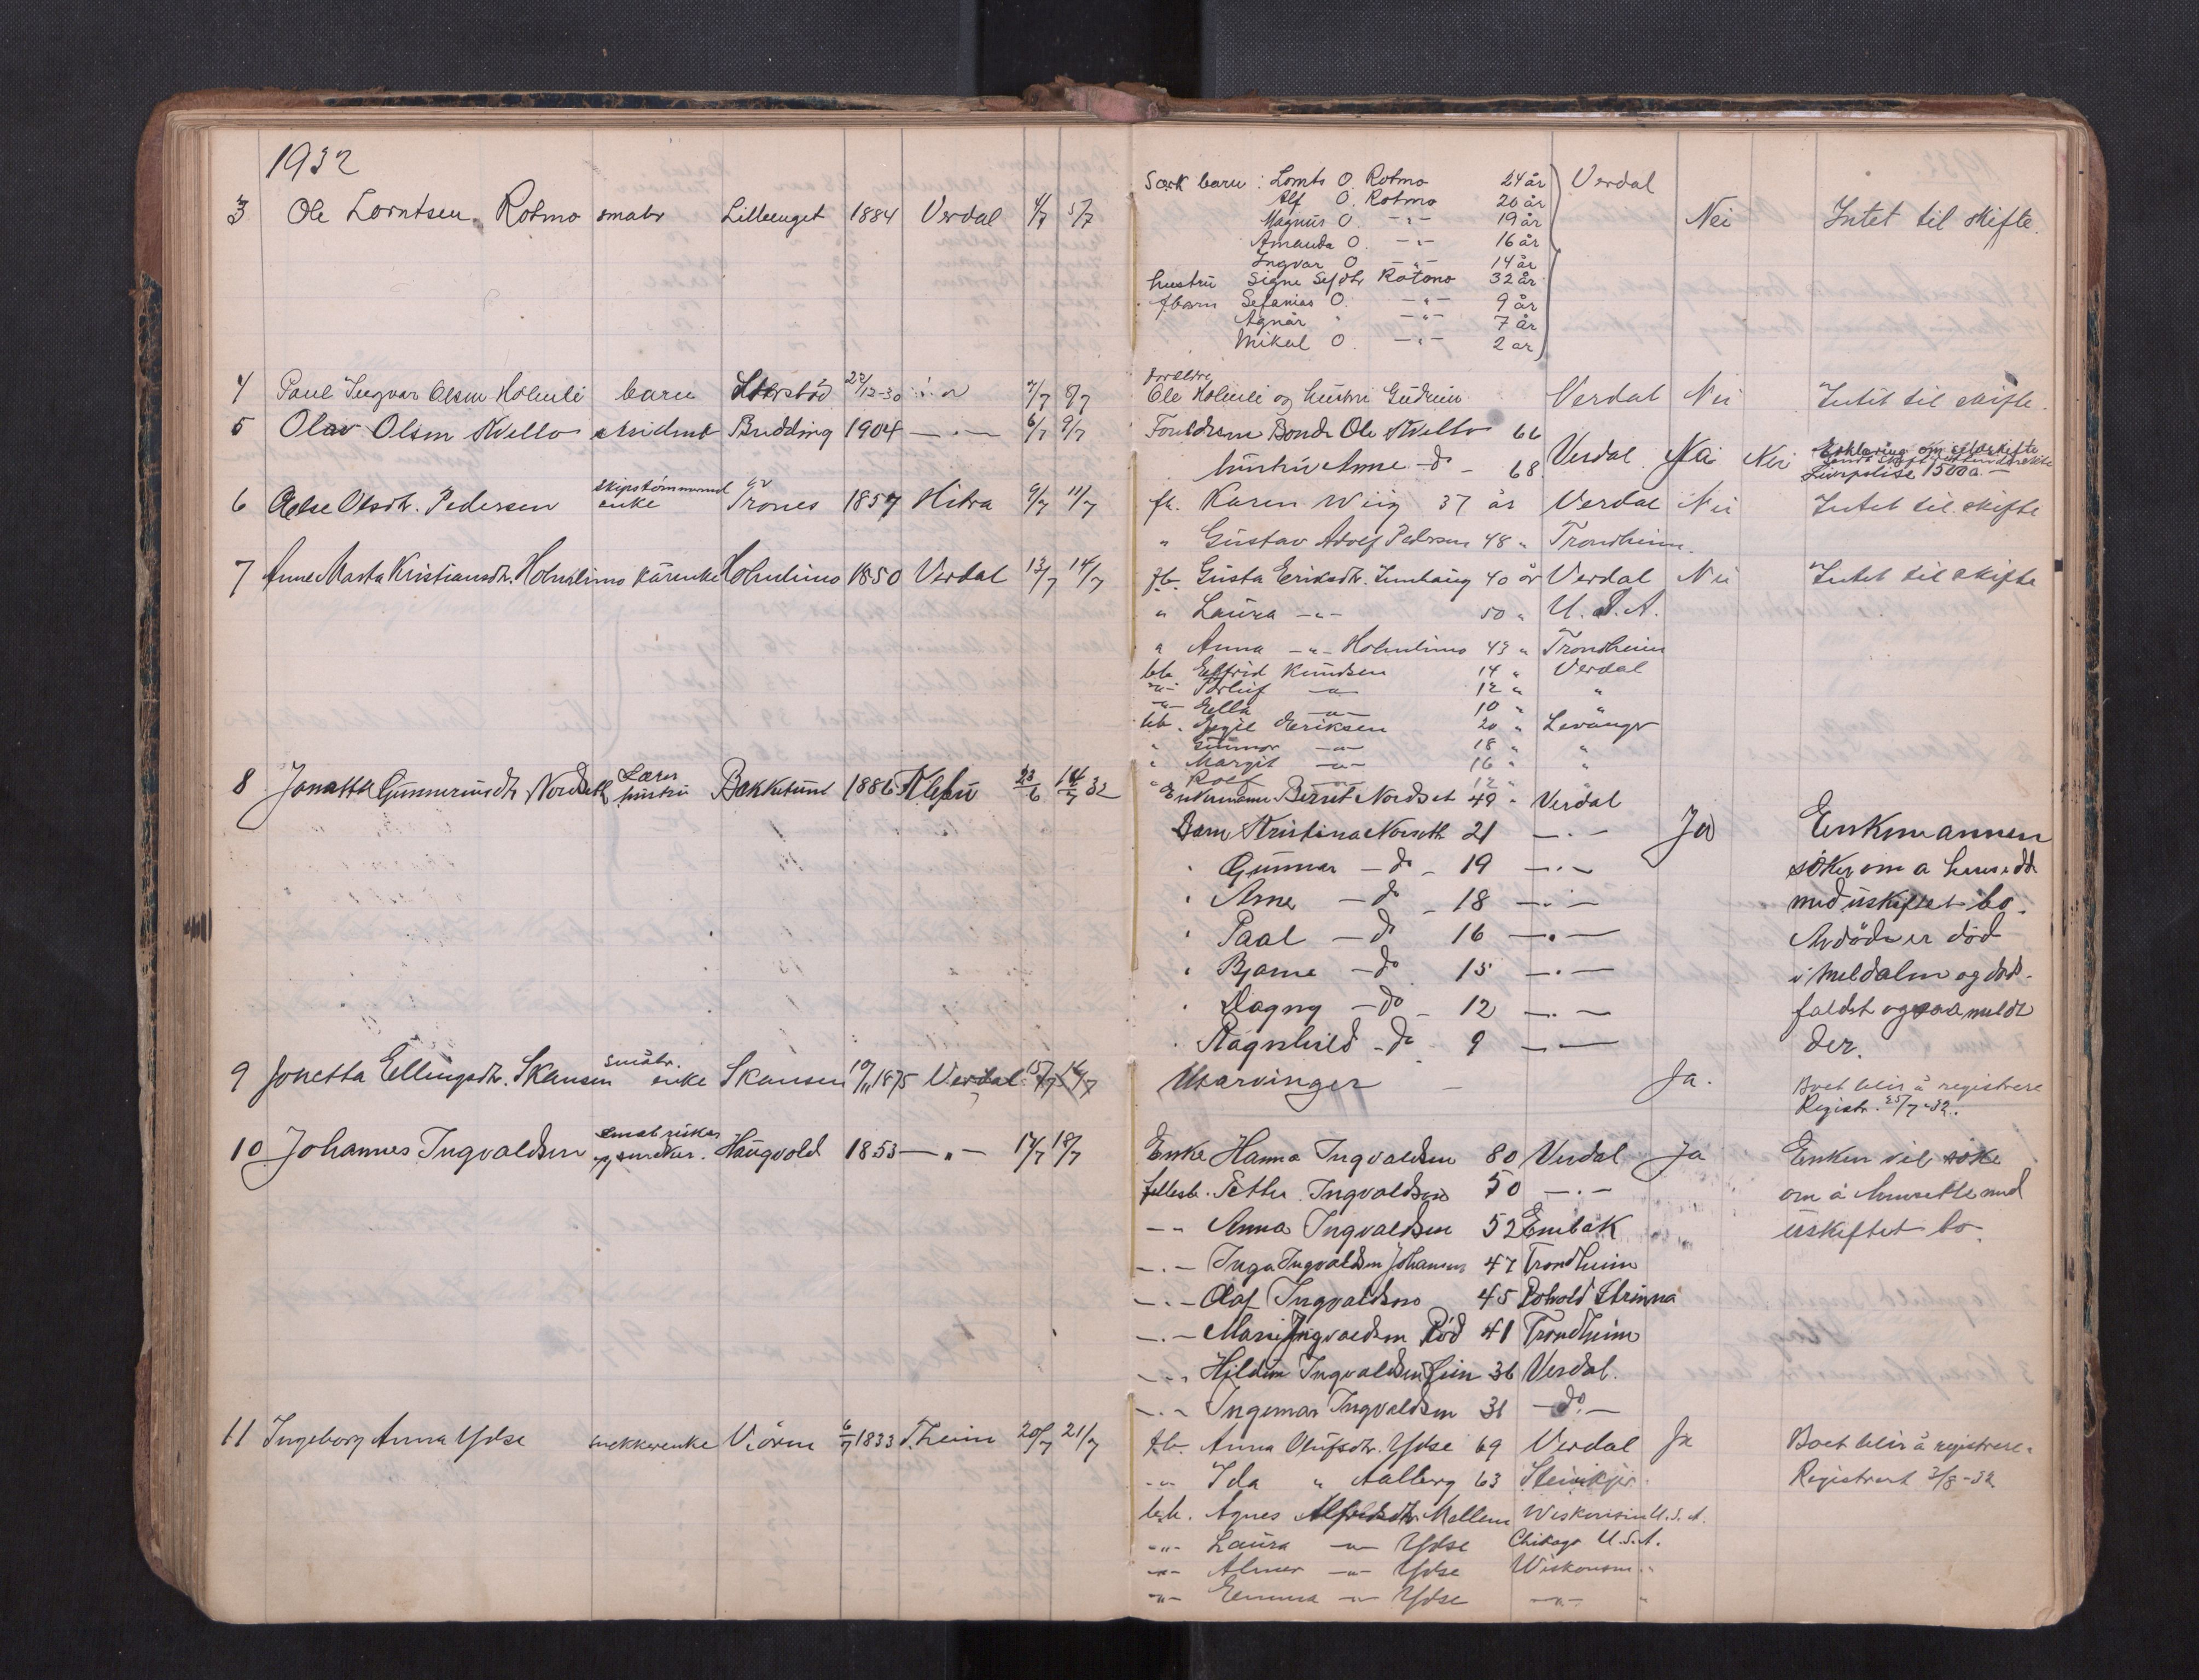 1932
3 Ole Lorntsen Rotmo smabr Lilleenget 1884 Verdal 4/7 5/7
Særk barn: Lornts O. Rotmo 24 år Verdal
Alf O. Rotmo 20 år
Magnus O. -"- 19 år Nei Intet til skifte.
Amanda O. -"- 16 år
Ingvar O. -"- 14 år
hustru Signe Sefdtr Rotmo 32 år
fbarn Sefanias O. -"- 9 år
Agnar " -"- 7 år
Mikal O. -"- 2 år
4 Paul Ingvar Olsen Holmli barn 22/12-30 7/7 8/7
Foreldre
Ole Holmli og hustru Gudrun Verdal Nei Intet til skifte.
5 Olav Olsen Kvello Budding 1904 -"- 6/7 9/7
Foreldrene Bonde Ole Kvello 66
hustru Anne do 68 Verdal Nei
Livspolise 1500 a. -
6 Else Olsdtr. Pedersen enke Trones 1857 Hitra 9/7 11/7
fb. Karen Wiig 37 år Verdal Nei Intet til skifte
" Gustav Adolf Pedersen 48 " Trondheim.
7 Anne Marta Kristiansdtr. Holmlimo kårenke Holmlimo 1850 Verdal 13/7 14/7
fb. Gusta Eriksdtr. Innhaug 40 år Verdal Nei Intet til skifte
" Laura -"- 50 " U. S. A.
" Anna -"- Holmlimo 43 " Trondheim
bb. Elfrid Knudsen 14 " Verdal
-"- Torleif -"- 12 " "
-"- Ella -"- 10 "
bb. Egil Eriksen 20 " Levanger
" Gunnar -"- 18 " "
" Margit -"- 16 " "
" Rolf -"- 12 "
8 Jonetta Gunneriusdtr Nordseth Lærer hustru Bakketun 1886 Klebu 23/6 14/7 32
Enkemann Berret Nordset 49 " Verdal
Barn Kristina Norseth 21 -"- Ja Enkemannen
" Gunnar - do - 19 -"- søker om a hensidde
" Arne - do - 18 -"- med uskiftet bo.
" Paal - do 16 -"- Avdøde er død
" Bjarne - do 15 -"- i Meldalen og døds-
" Dagny - do - 12 -"- faldet ogsaa meldt
" Ragnhild - do - 9 -"- der.
9 Jonetta Ellingsdtr. Skansen småbr. enke Skansen 10/11 1875 Verdal 15/7 16/7
Utarvinger - Ja. Boet blir å registrere
Registr. 25/7-32.
10 Johannes Ingvaldsen smabruker og snekker. Haugvold 1853 -"- 17/7 18/7
Enke Hanna Ingvaldsen 80 Verdal Ja Enken vil søke
fellesb. Petter Ingvaldsen 50 -"- om å hensette med
-"- Anna Ingvaldsen 52 Embak uskiftet bo.
-"- Inga Ingvaldsen Johansen 47 Trondheim
-"- Olaf Ingvaldsen 45 Strinna
-"- Marie Ingvaldsen Rød 41 Trondheim
-"- Hildur Ingvaldsen Lein 36 Verdal.
-"- Ingemar Ingvaldsen 31 - do. -
11 Ingeborg Anna Ydse snekkerenke Vioren 6/7 1833 Theim 20/7 21/7
fb. Anna Olufsdtr. Ydse 69 Verdal Ja Boet blir å registrere.
-"- Ida " Aalberg 63 Steinkjer. Registrert 3/8-32
bb. Agnes Alfredsdtr Mellem Wiskonsin U.S.A.
-"- Laura -"- Ydse Chikago U.S.A.
-"- Almer -"- Ydse Wiskonsin "
-"- Emma -"- Ydse -"- "